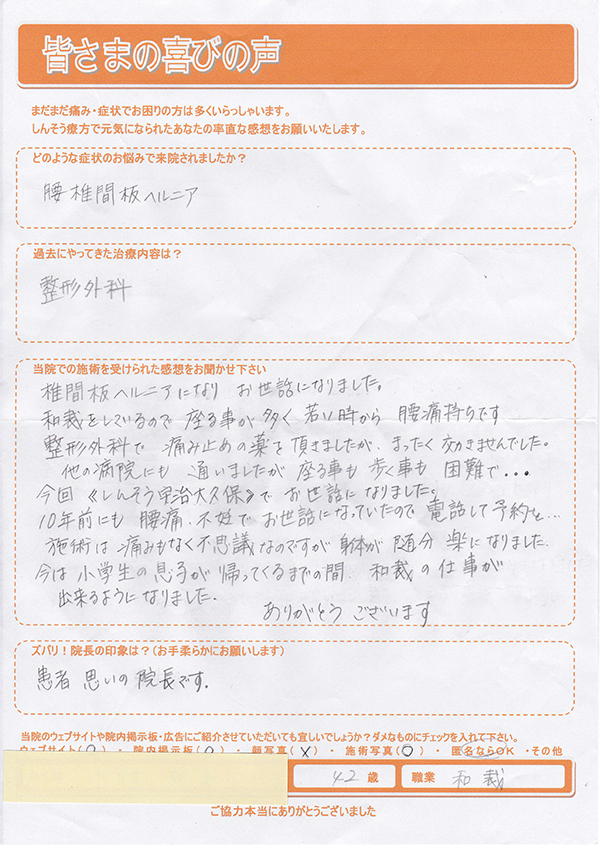 皆さまの喜びの声
まだまだ痛み・症状でお困りの方は多くいらっしゃいます。
しんそう療方で元気になられたあなたの率直な感想をお願いいたします。
どのような症状のお悩みで来院されましたか？
腰椎間板ヘルニア
過去にやってきた治療内容は？
整形外科
当院での施術を受けられた感想をお聞かせ下さい
椎間板ヘルニアになり お世話になりました。
和裁をしているので 座る事が多く 若い時から 腰痛持ちです
整形外科で 痛み止めの薬を頂きましたが、まったく効きませんでした。
他の病院にも 通いましたが 座る事も 歩く事も 困難で・・・
今回《しんそう宇治大久保》で お世話になりました。
10年前にも 腰痛、不妊で お世話になっていたので 電話して予約を…
施術は 痛みもなく不思議なのですが 身体が 随分 楽になりました。
今は 小学生の息子が 帰ってくるまでの間、和裁の仕事が
出来るようになりました。
ありがとう ございます
ズバリ！院長の印象は？（お手柔らかにお願いします）
患者 思いの 院長です。
当院のウェブサイトや院内掲示板・広告にご紹介させていただいても宜しいでしょうか？ダメなものにチェックを入れて下さい。
ウェブサイト（○）・ 院内掲示板（○）・ 顔写真（×）・ 施術写真（○）・ 匿名ならOK ・その他
42 歳 職業 和裁
ご協力本当にありがとうございました